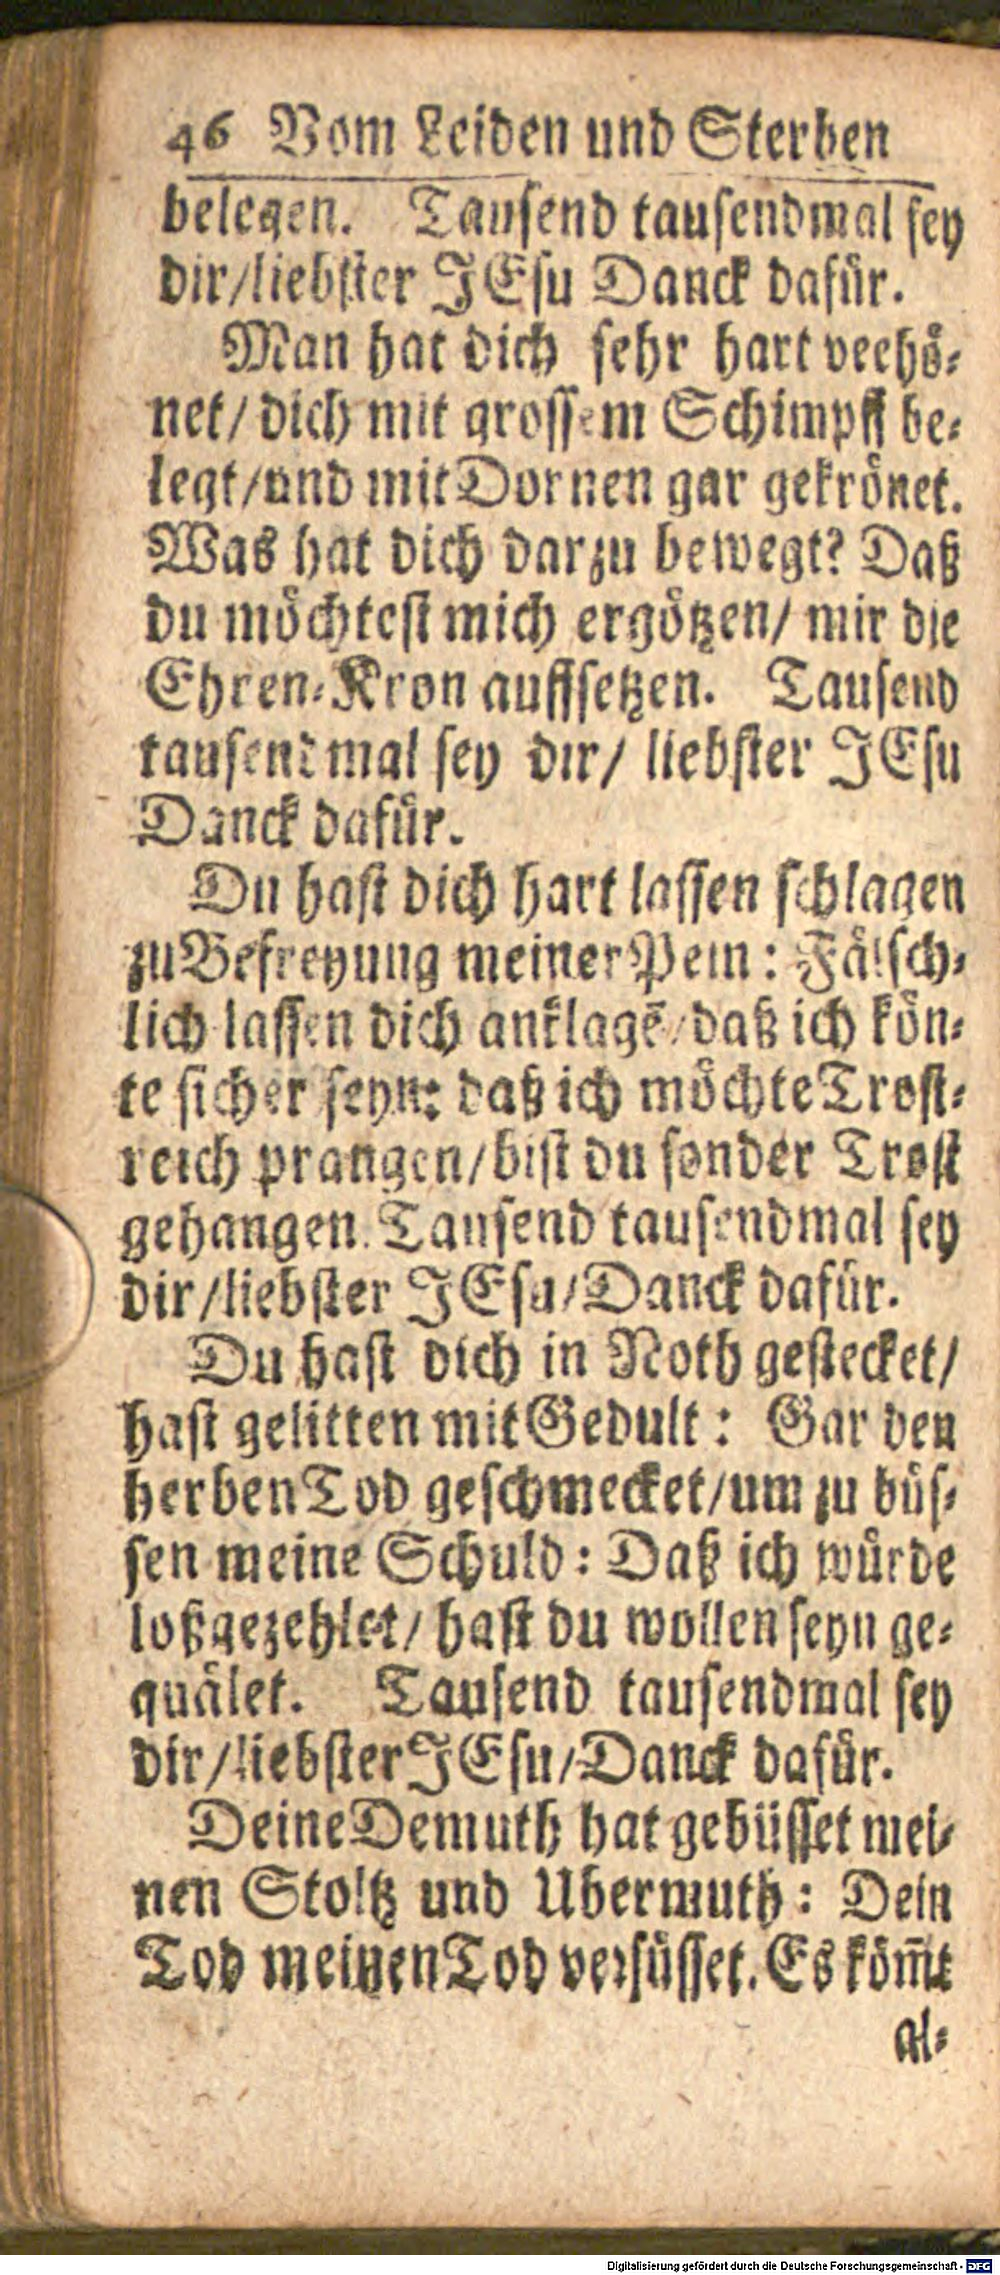 46 Vom Leiden und Sterben
belegen. Tausend tausendmal sey
dir/liebster JEsu Danck dafür.
Man hat dich sehr hart veehö-
net/ dich mit grossem Schimpff be-
legt/und mit Dornen gar gekrönet.
Was hat dich darzu bewegt? Daß
du möchtest mich ergötzen/ mir die
Ehren-Kron auffsetzen. Tausend
tausendmal sey dir/ liebster JEsu
Danck dafür.
Du hast dich hart lassen schlagen
zu Befreyung meiner Pein: Fälsch-
lich lassen dich anklagē/daß ich kön-
te sicher seyn: daß ich möchte Trost-
reich prangen/bist du sonder Trost
gehangen. Tausend tausendmal sey
dir/liebster JEsu/Danck dafür.
Du hast dich in Noth gestecket/
hast gelitten mit Gedult: Gar den
herben Tod geschmecket/um zu büs-
sen meine Schuld: Daß ich würde
loßgezehlet/ hast du wollen seyn ge-
quälet. Tausend tausendmal sey
dir/liebster JEsu/Danck dafür.
Deine Demuth hat gebüsset mei-
nen Stoltz und Ubermuth: Dein
Tod meinen Tod versüsset. Es köm̄t
al-
Digitalisierung gefördert durch die Deutsche Forschungsgemeinschaft - DFG